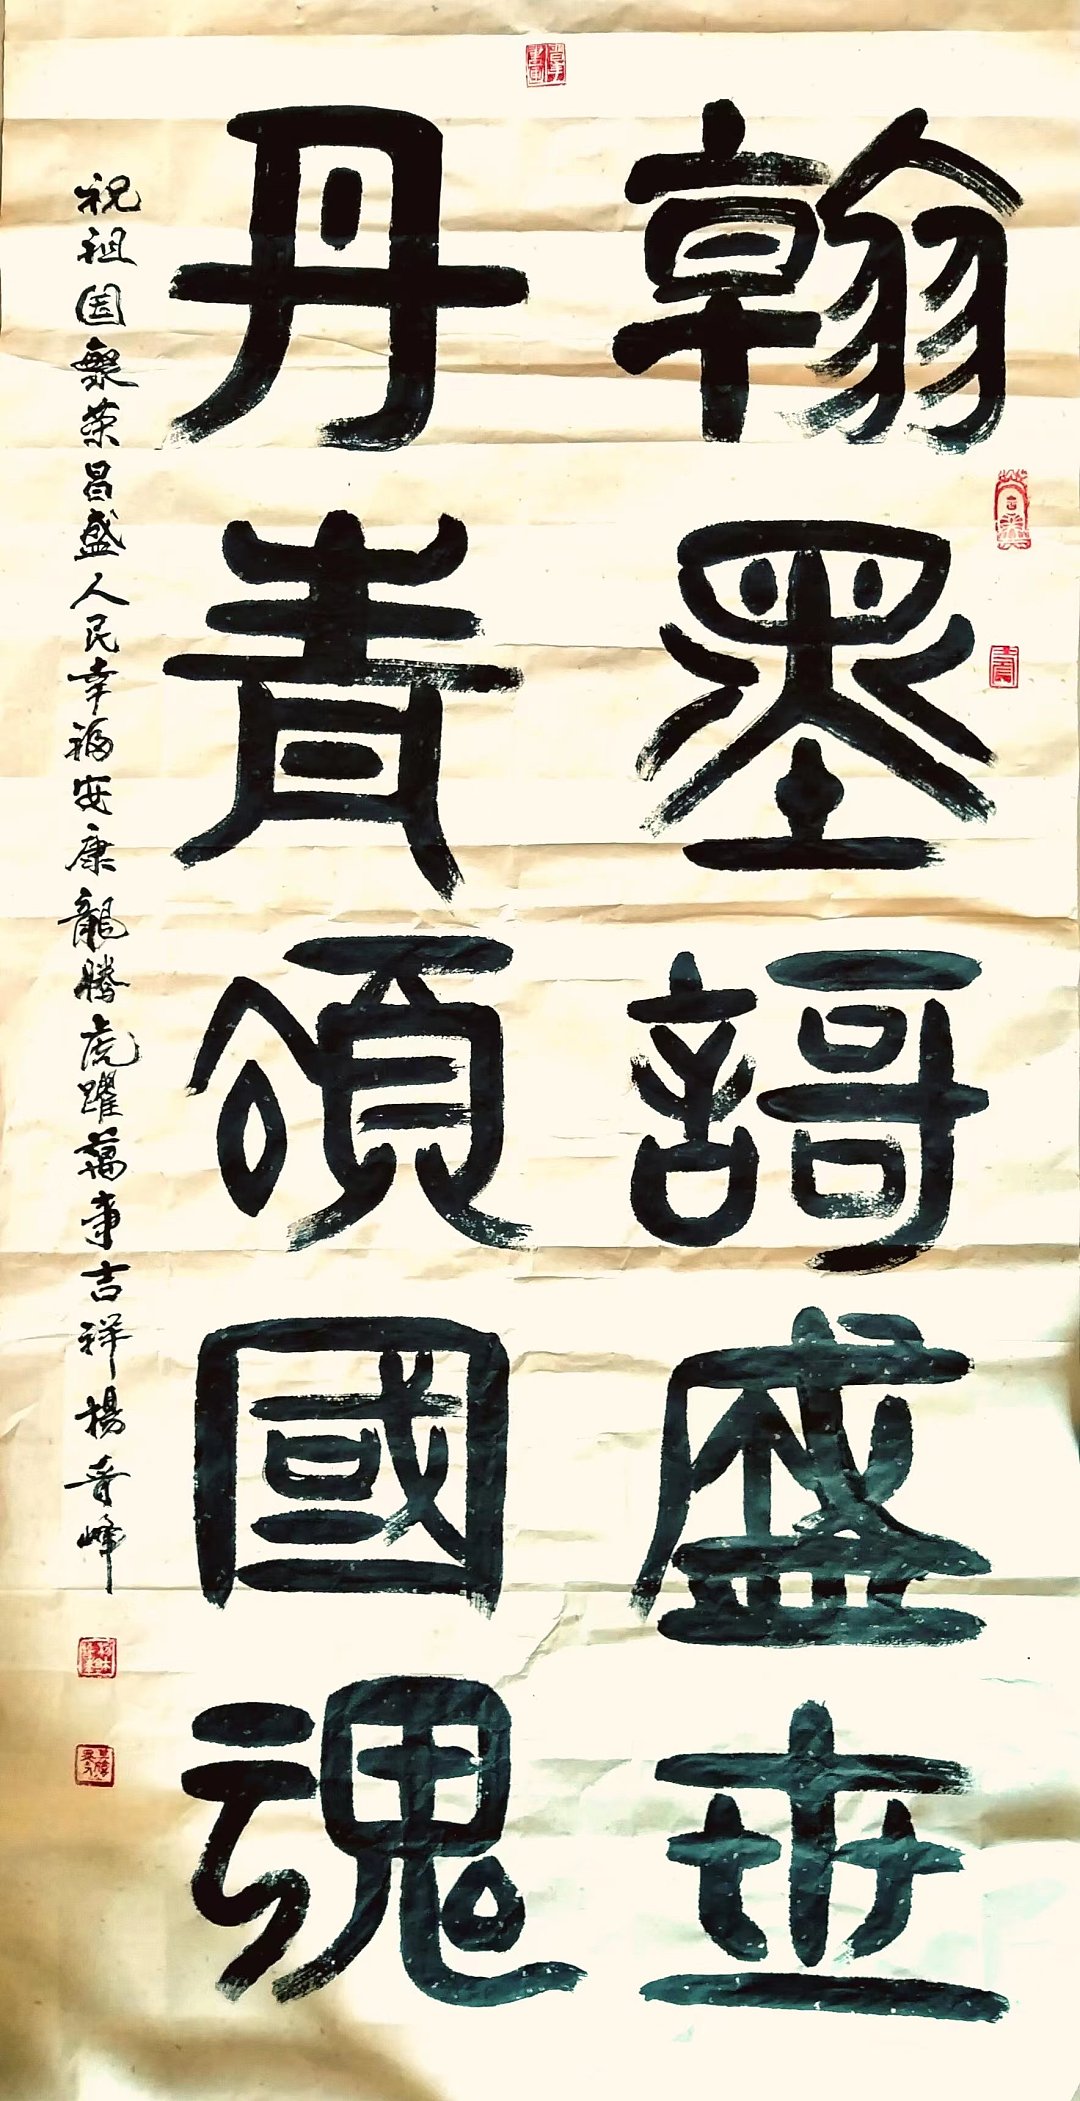 翰墨謌盛世
丹青頌國魂
祝祖国繁荣昌盛人民幸福安康龍腾虎躍萬事吉祥楊青峰